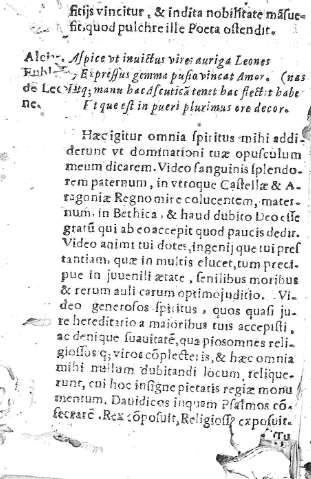 fitijs vincitur, & indita nobilitate mãsue-
fit, quod pulchre ille Poeta ostendit.
Alciat. Aspice vt inuictus vires auriga Leones
Expressus gemma pusio vincat Amor. (nas
de Leo Utq; manu hac scuticã tenet hac flectit habe
ne. Et que est in pueri plurimus ore decor.
Hæc igitur omnia spiritus mihi addi-
derunt vt dominationi tuæ opusculum
meum dicarem. Video sanguinis splendo-
rem paternum, in vtroque Castellæ & A-
ragoniæ Regno mire colucentem, mater-
num, in Bethica, & haud dubito Deo esse
gratũ qui ab eo accepit quod paucis dedit.
Video animi tui dotes, ingenij que tui pręs
tantiam, quæ in multis elucet, tum preci-
pue in juuenili ætate, senilibus moribus
& rerum auli carum optimo juditio. Vi-
deo generosos spiritus, quos quasi ju-
re hereditario a maioribus tuis accepisti,
ac denique suauitatẽ, qua pios omnes reli-
giossos q; viros cõplecteris, & hæc omnia
mihi nullum dubitandi locum, relique-
runt, cui hoc insigne pietatis regiæ monu
mentum. Dauidicos inquam Psalmos cõ-
secrarẽ. Rex cõposuit, Religiossꝰ exposuit.
Tu